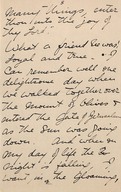 many things, enter
thou into the joy of
thy Lord."
What a friend he was!
Loyal and True. I
can remember well one
delightsome day when
we walked together over
the Mount of Olives &
entered the Gate of Jerusalem
as the Sun was going
down. And when on
my day of life the
night is falling &
in the gloaming,